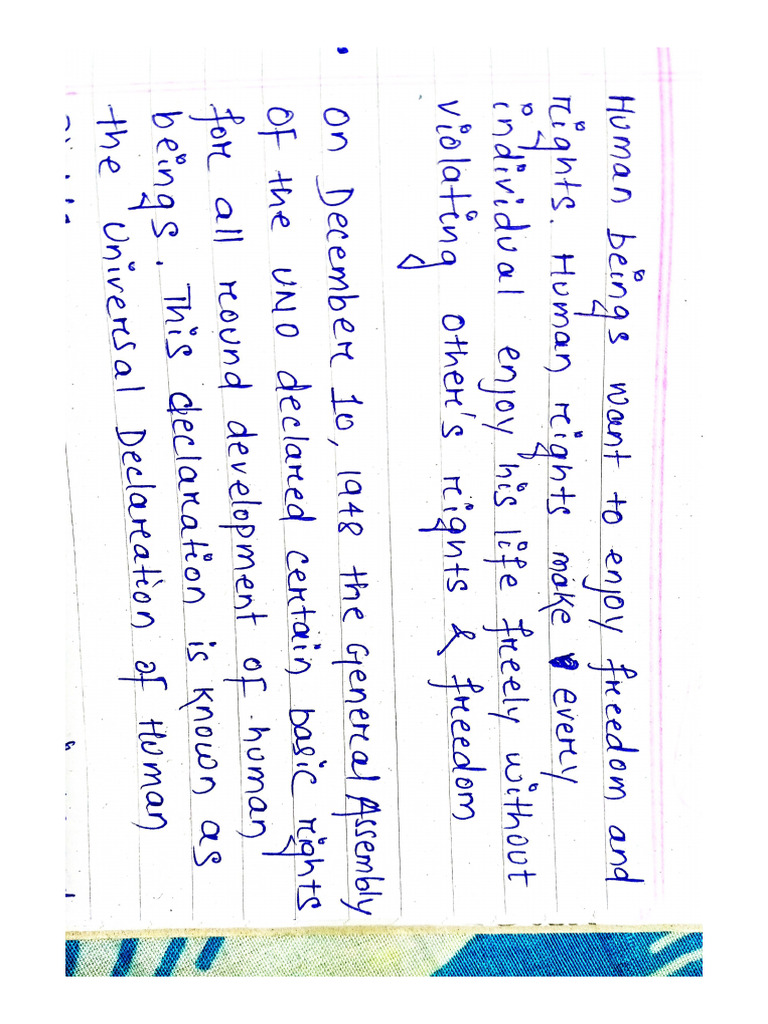 Human beings want to enjoy freedom and
rights. Human rights make every
individual enjoy his life freely without
violating other's rights & freedom
On December 10, 1948 the General Assembly
of the UNO declared certain basic rights
for all round development of human
beings. This declaration is known as
the Universal Declaration of Human